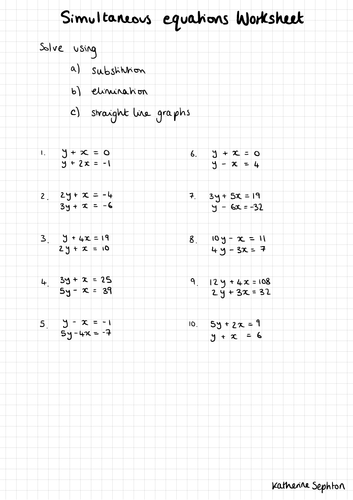 Simultaneous equations Worksheet
Solve using
a) substitution
b) elimination
c) straight line graphs
1. y + x = 0
y + 2x = -1
2. 2y + x = -4
3y + x = -6
3. y + 4x = 19
2y + x = 10
4. 3y + x = 25
5y - x = 39
5. y - x = -1
5y - 4x = -7
6. y + x = 0
y - x = 4
7. 3y + 5x = 19
y - 6x = -32
8. 10y - x = 11
4y - 3x = 7
9. 12y + 4x = 108
2y + 3x = 32
10. 5y + 2x = 9
y + x = 6
Katherine Sephton